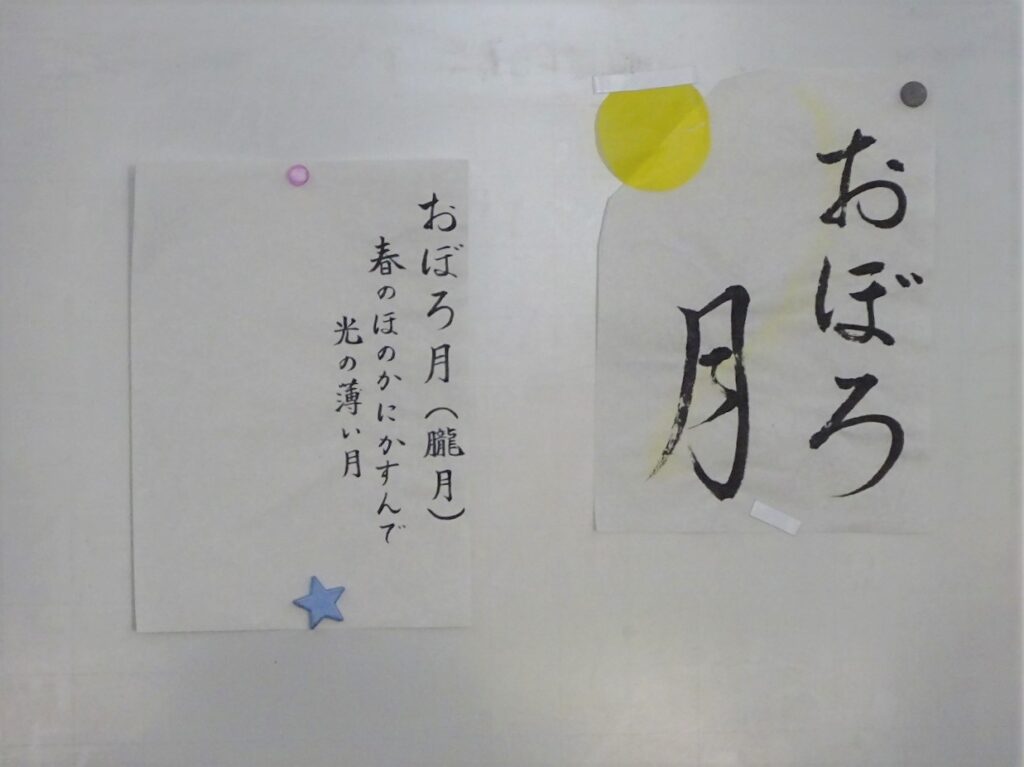 おぼろ
月
おぼろ月(朧月)
春のほのかにかすんで
光の薄い月